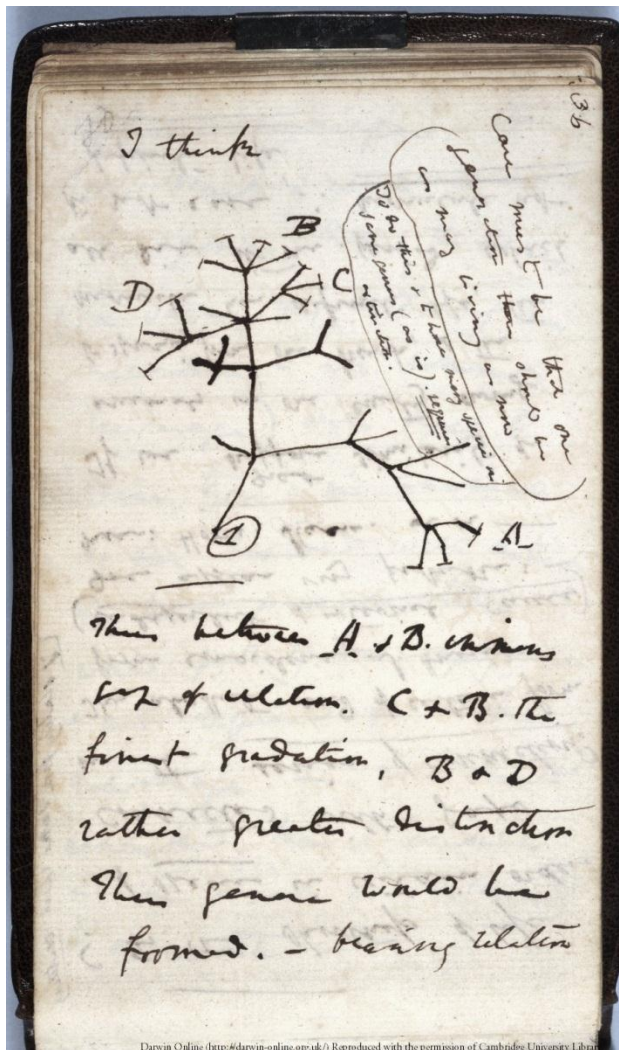 36
I think
Case must be that one
generation then should be
as many living as now
To do this & to have many species in
same genus (as is) requires
extinction.
B
C
D
A
1
Thus between A & B. immens
gap of relation. C & B. The
finest gradation, B & D
rather greater distinction
Thus genera would be
formed. — bearing relation
Darwin Online (http://darwin-online.org.uk/) Reproduced with the permission of Cambridge University Librar